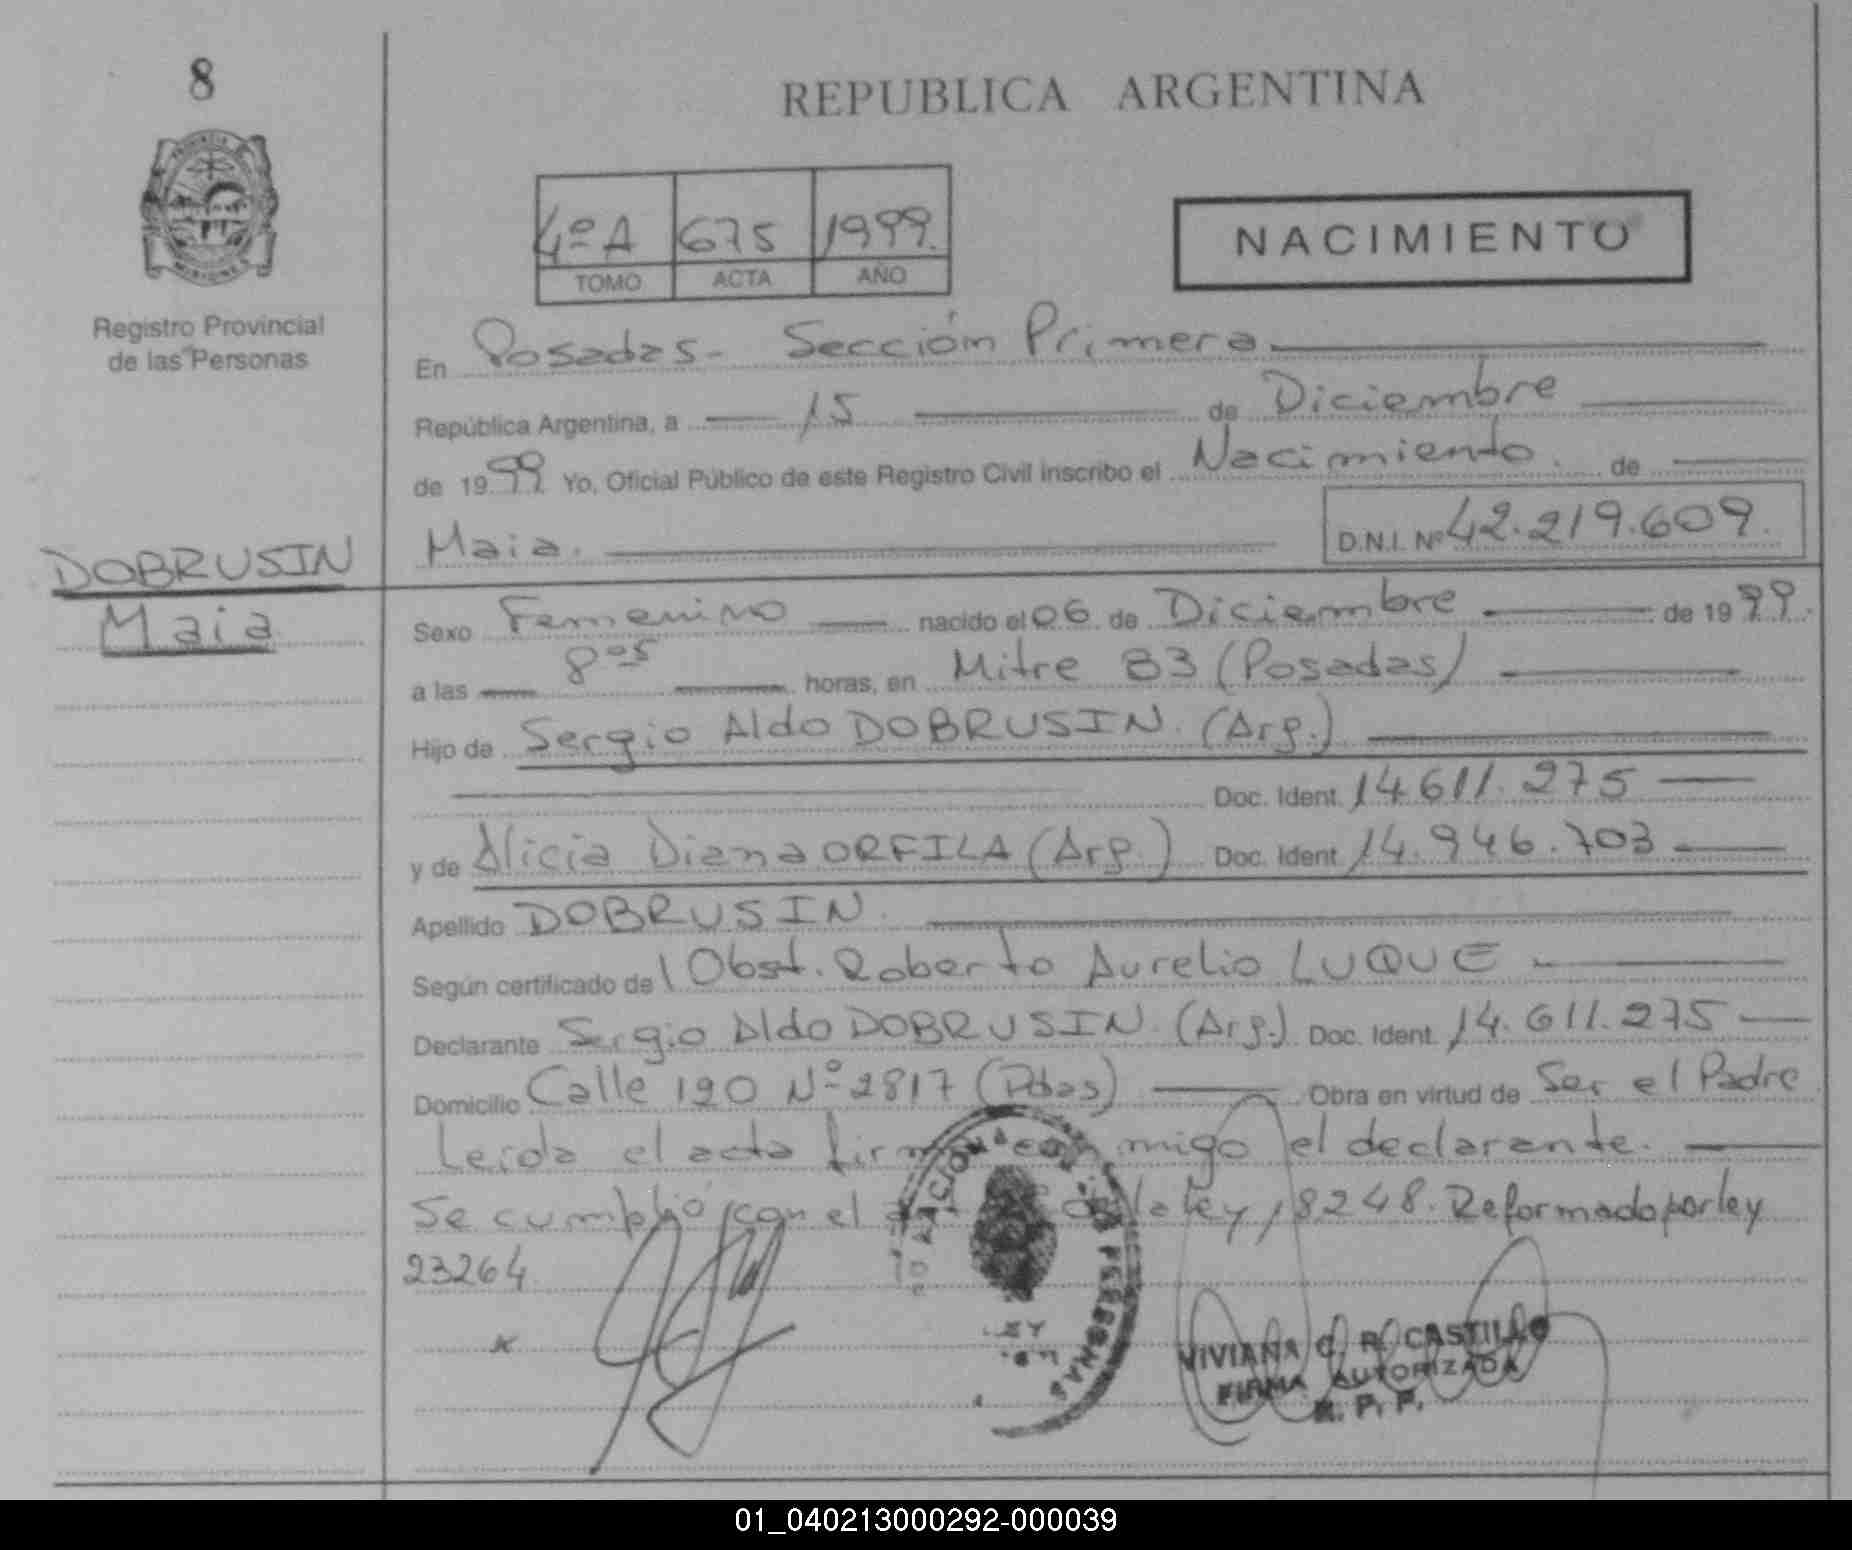 8
REPUBLICA ARGENTINA
4º A 675 1999.
TOMO ACTA AÑO
NACIMIENTO
Registro Provincial
de las Personas
En Posadas - Sección Primera
República Argentina, a 15 de Diciembre
de 1999 Yo, Oficial Público de este Registro Civil inscribo el Nacimiento. de
DOBRUSIN
Maia
Maia. D.N.I. Nº 42.219.609.
Sexo Femenino nacido el 06 de Diciembre de 1999.
a las 8 05 horas, en Mitre 83 (Posadas)
Hijo de Sergio Aldo DOBRUSIN. (Arg.)
Doc. Ident. 14.611.275
y de Alicia Diana ORFILA (Arg.) Doc. Ident. 14.946.703
Apellido DOBRUSIN.
Según certificado del Obst. Roberto Aurelio LUQUE
Declarante Sergio Aldo DOBRUSIN. (Arg.) Doc. Ident. 14.611.275
Domicilio Calle 120 Nº 2817 (Pdas) Obra en virtud de Ser el Padre
Leída el acta firma conmigo el declarante.
Se cumplió con el de la ley 18248. Reformado por ley
23264
PERSONAS
VIVIANA C. R. CASTILLO
FIRMA AUTORIZADA
R. P. P.
01_040213000292-000039